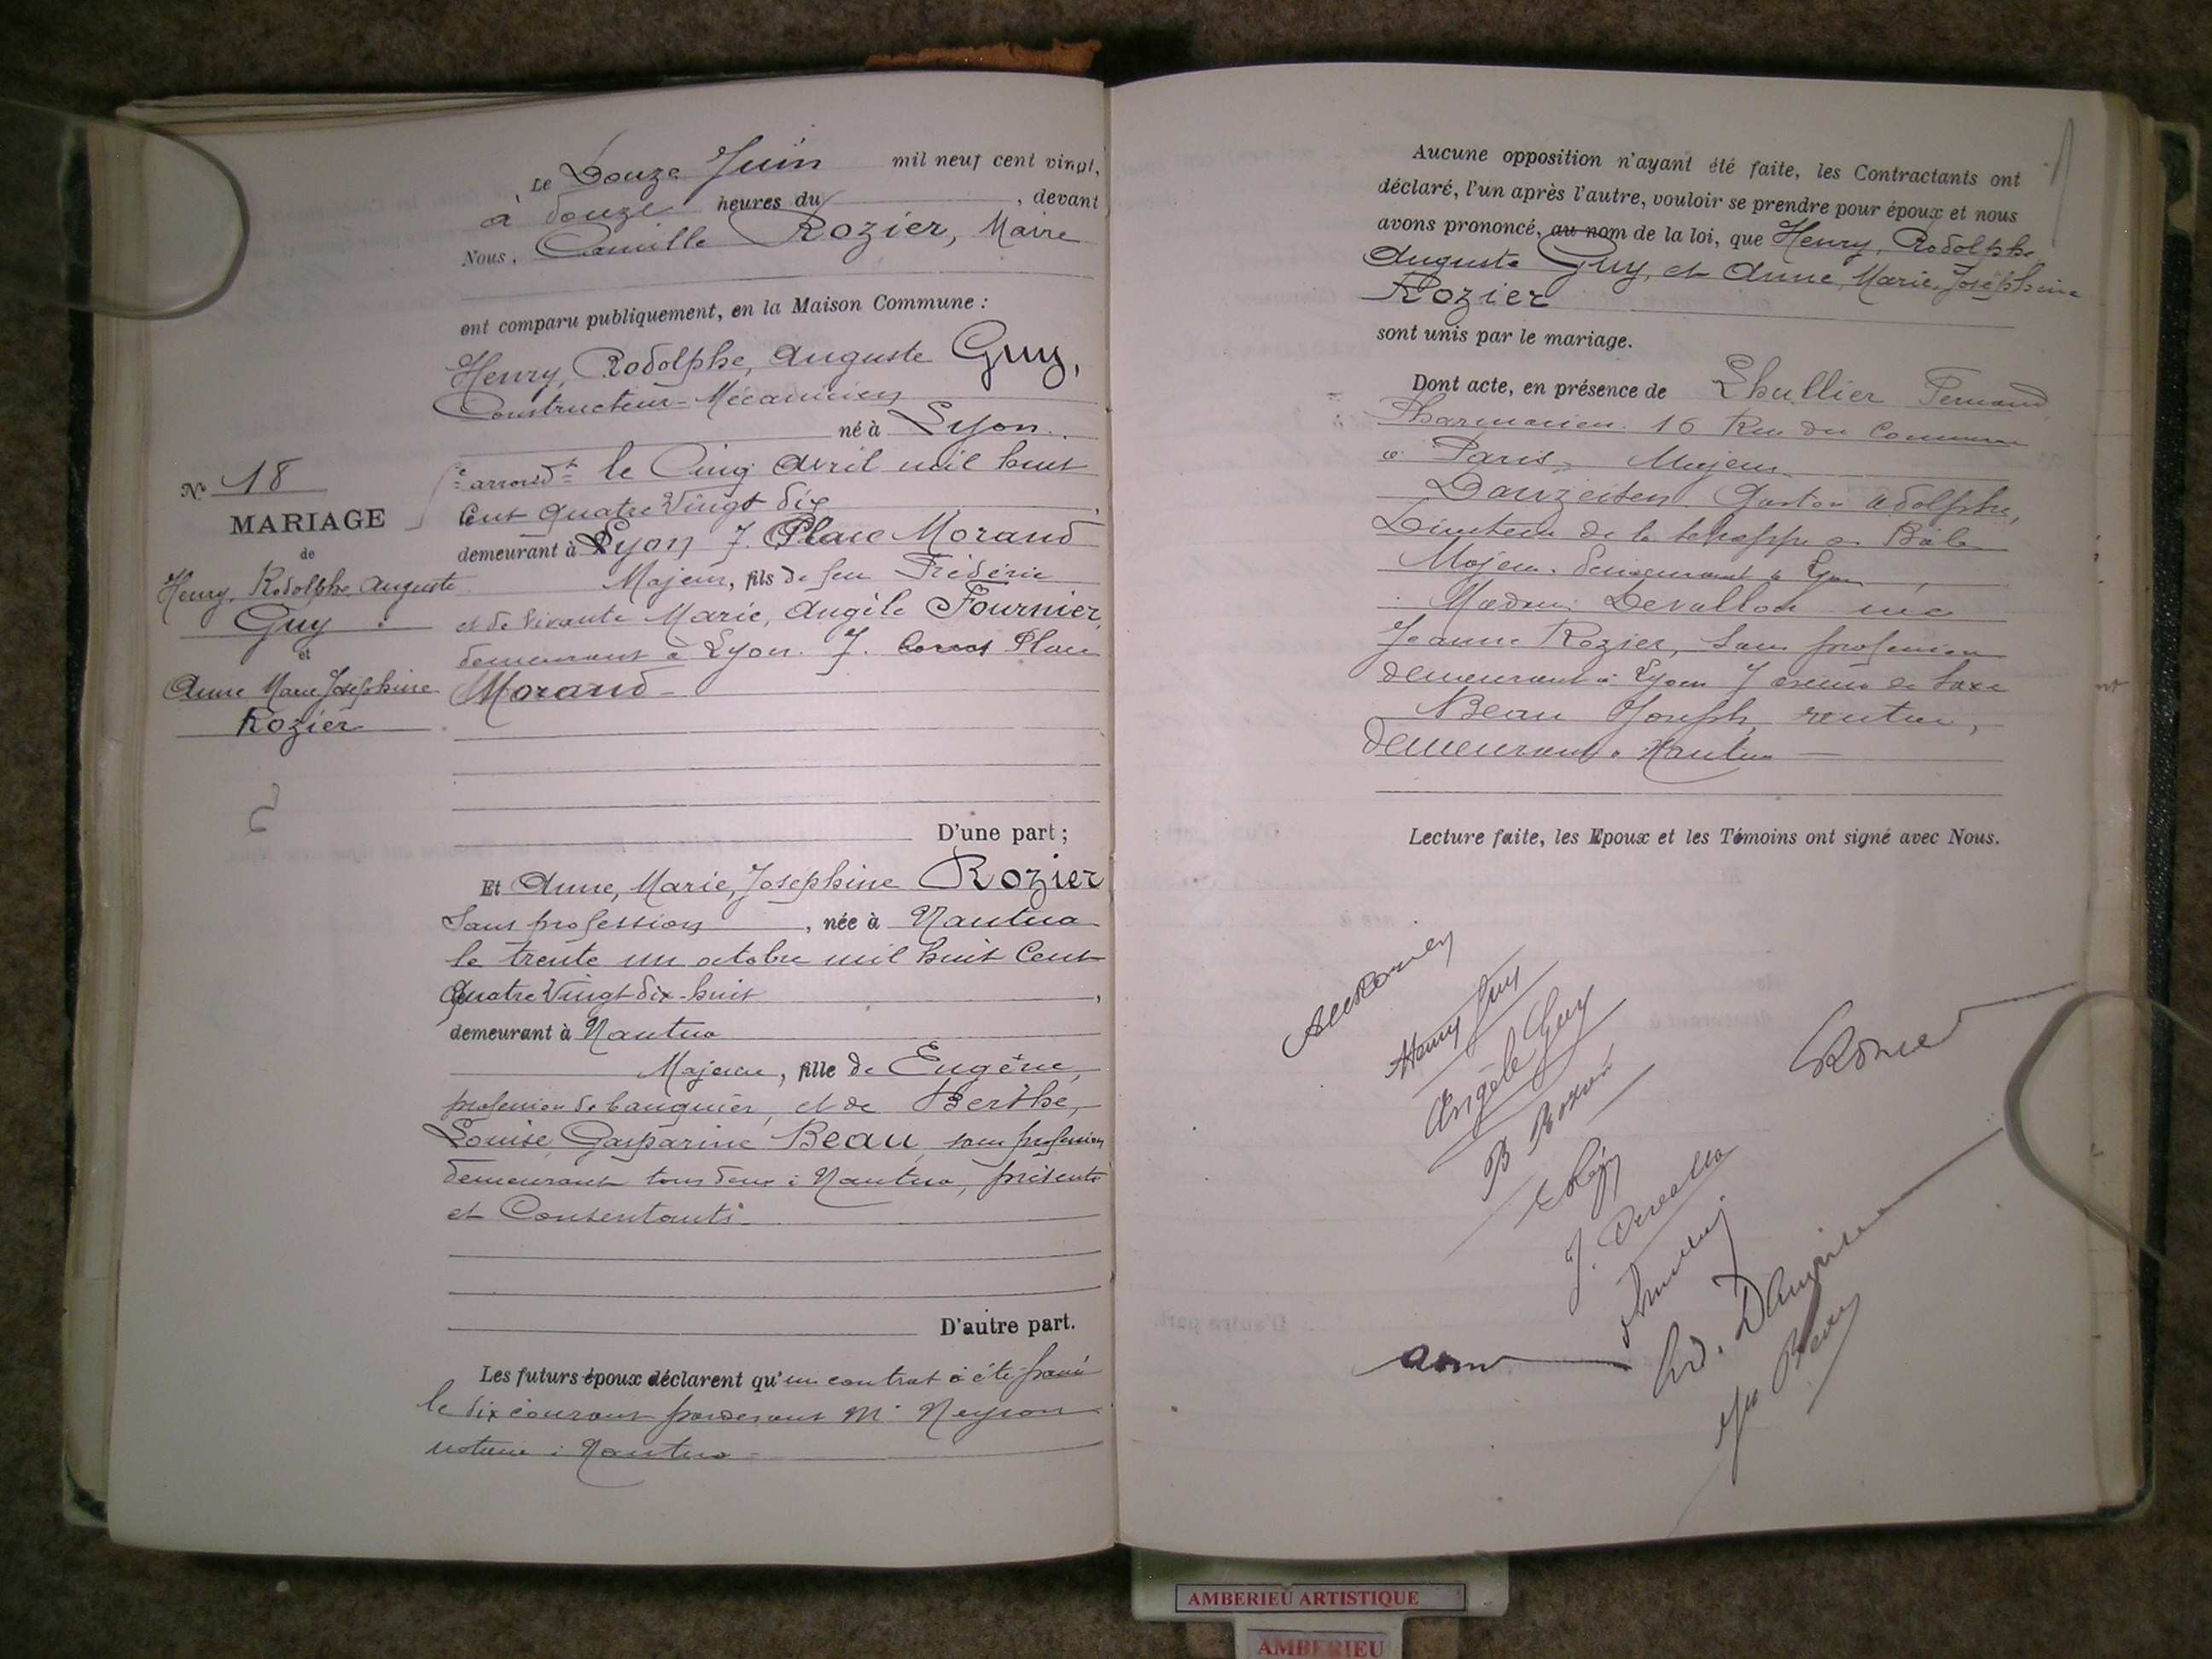 Le Douze Juin mil neuf cent vingt,
à douze heures du , devant
Nous, Camille Rozier, Maire
ont comparu publiquement, en la Maison Commune :
Henry, Rodolphe, Auguste Guy,
Constructeur-Mécanicien
né à Lyon
arrondt le Cinq avril mil huit
Cent quatre Vingt dix,
demeurant à Lyon 7. Place Morand
Majeur, fils de feu Frédéric
et de vivante Marie, Angèle Fournier,
demeurant à Lyon. 7. Place
Morand
D'une part ;
Et Anne, Marie, Josephine Rozier
Sans profession, née à Nantua
le trente un octobre mil huit Cent
Quatre Vingt-dix-huit,
demeurant à Nantua
Majeure, fille de Eugène,
profession de banquier, et de Berthe,
Louise, Gasparine Beau, sans profession
demeurant tous deux à Nantua, présents
et Consentants
D'autre part.
Les futurs époux déclarent qu'un contrat a été passé
le dix courant pardevant Me Neyron
notaire à Nantua
No 18
MARIAGE
de
Henry, Rodolphe, Auguste
Guy
et
Anne Marie Josephine
Rozier
Aucune opposition n'ayant été faite, les Contractants ont
déclaré, l'un après l'autre, vouloir se prendre pour époux et nous
avons prononcé, au nom de la loi, que Henry, Rodolphe
Auguste Guy, et Anne, Marie, Josephine
Rozier
sont unis par le mariage.
Dont acte, en présence de Lhullier Fernand
Pharmacien 16 Rue du
à Paris, Majeur
Gaston Adolphe,
Directeur de la à Bâle
Majeur, demeurant à Lyon
Madame Devallod née
Jeanne Rozier, sans profession
demeurant à Lyon 7 avenue de Saxe
Beau Joseph, rentier,
demeurant à Nantua
Lecture faite, les Epoux et les Témoins ont signé avec Nous.
AMRozier
Henry Guy
Angèle Guy
B Rozier
J. Devallod
Rozier
Beau
AMBERIEU ARTISTIQUE
AMBERIEU